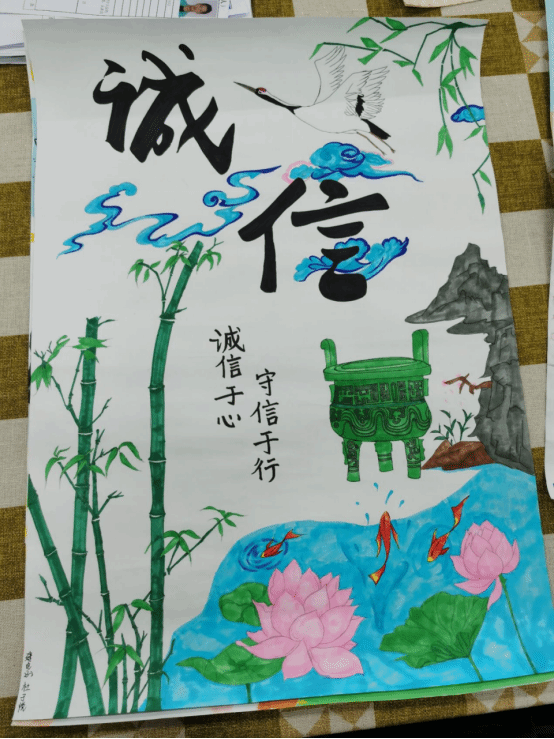 诚
信
诚信于心
守信于行